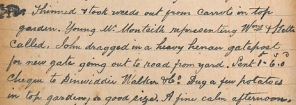 Thinned & took weeds out from carrots in top
garden. Young Mr. Monteith representing Wm &
called. John dragged in a heavy henau gatepost
for new gate going out to road from yard. Post 1-6.0
Cheque to Dinwiddie Walker & Co. Dug a few potatoes
in top garden, a good size. A fine calm afternoon.